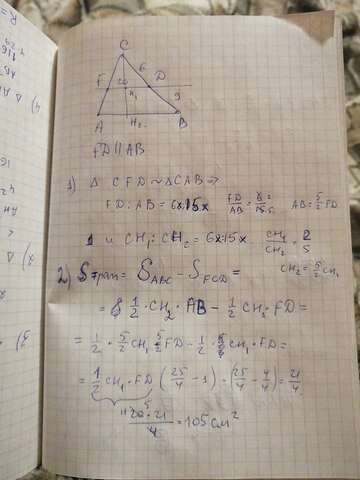 C
F
6
D
20
H₁
9
A
H₂
B
FD || AB
1) Δ CFD ~ Δ CAB ⇒
FD : AB = 6x : 15x
FD/AB = 6/15 =
AB = 5/2 FD
и CH₁ : CH₂ = 6x : 15x
CH₁/CH₂ = 2/5
CH₂ = 5/2 CH₁
2) Sтрап = S ABC − S FCD =
= 1/2 · CH₂ · AB − 1/2 CH₁ · FD =
= 1/2 · 5/2 CH₁ 5/2 FD − 1/2 CH₁ · FD =
= 1/2 CH₁ · FD (25/4 − 1) = (25/4 − 4/4) = 21/4
20 · 21 / 4 = 105 см²
5
4) Δ
2) Δ
3)